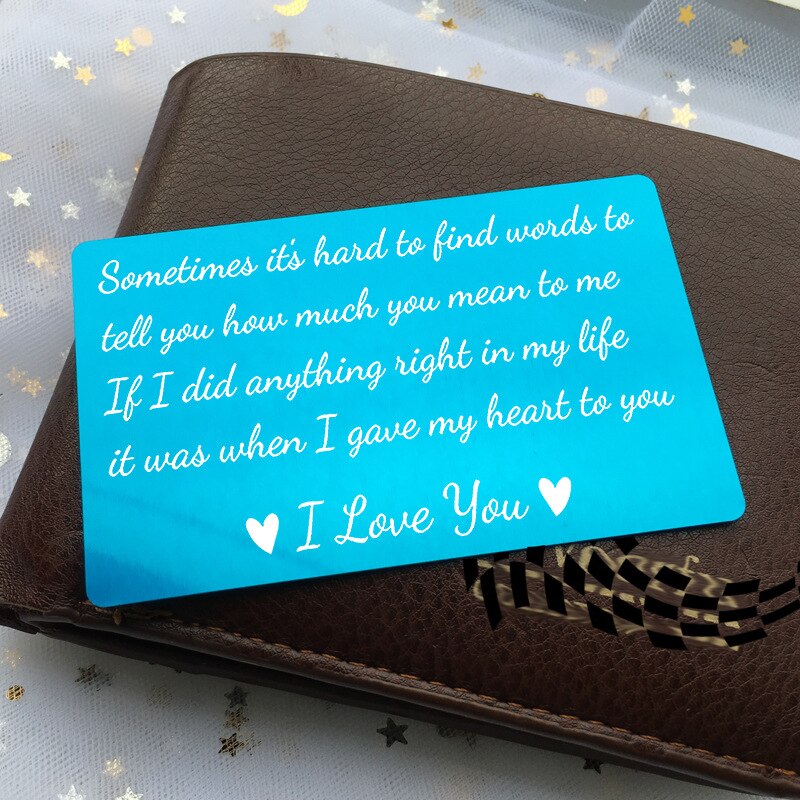 Sometimes it's hard to find words to
tell you how much you mean to me
If I did anything right in my life
it was when I gave my heart to you
I Love You